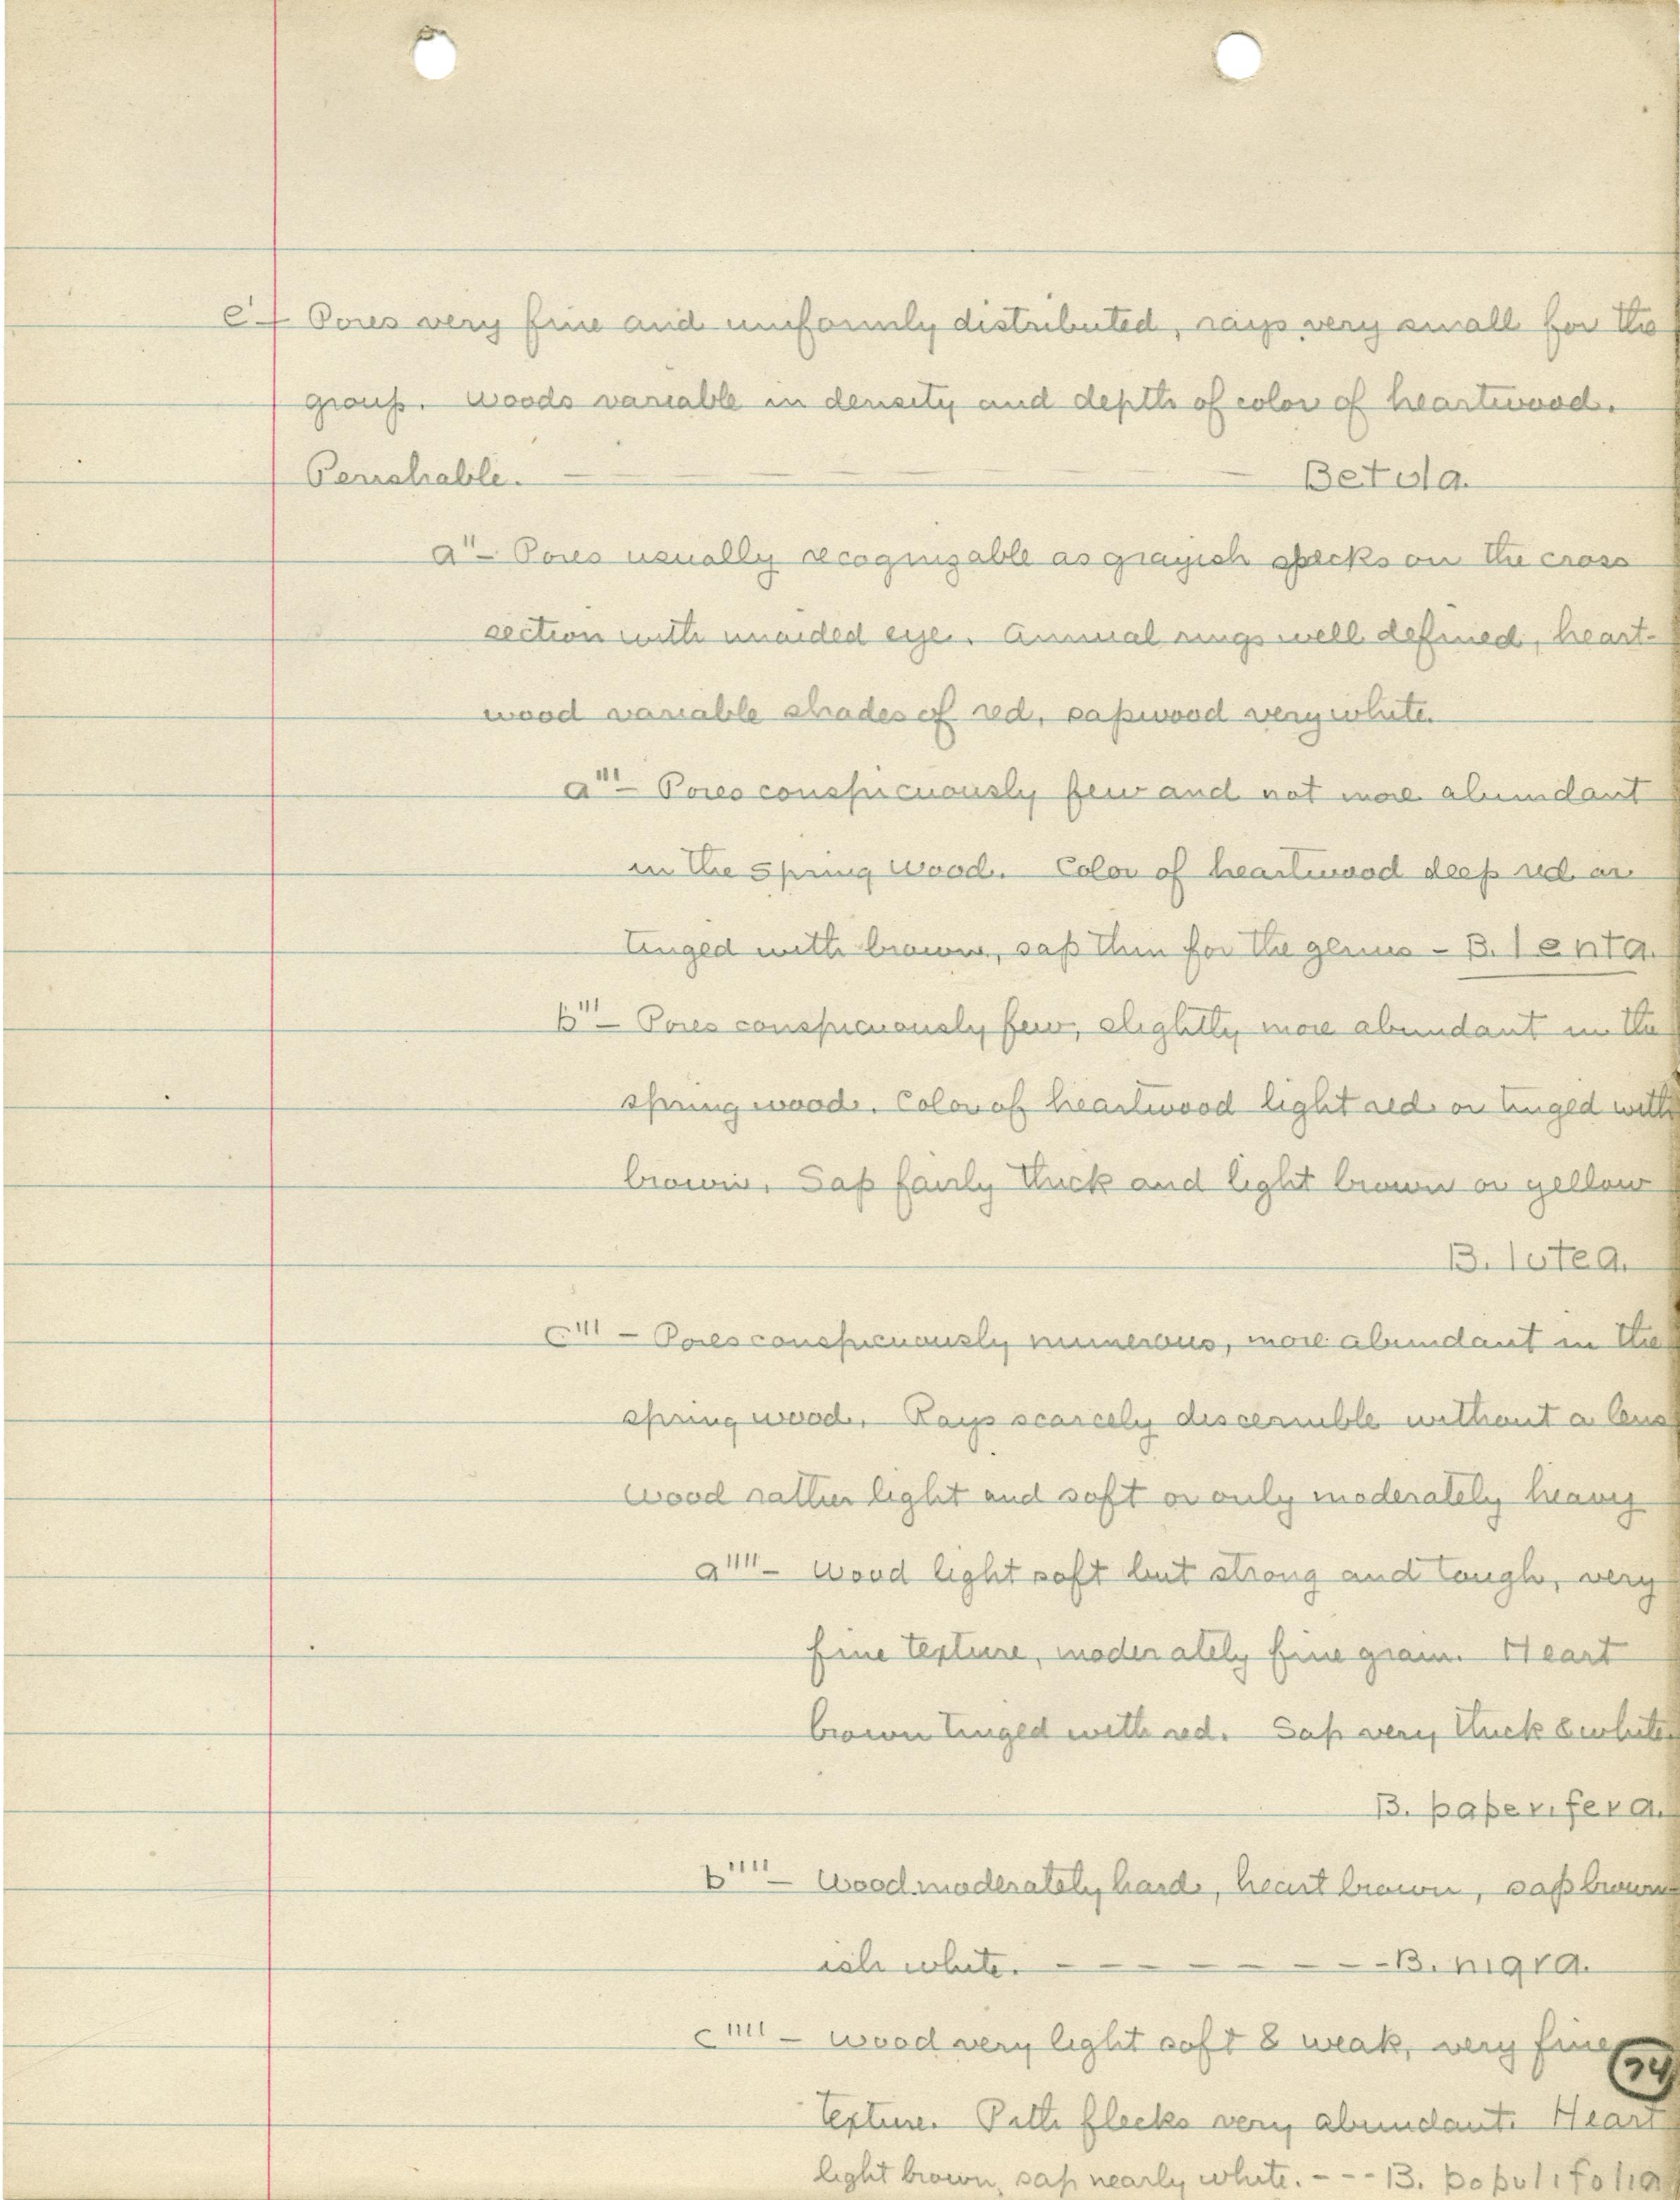 e' - Pores very fine and uniformly distributed, rays very small for the
group. Woods variable in density and depth of color of heartwood.
Perishable. — — — Betula.
a'' - Pores usually recognizable as grayish specks on the cross
section with unaided eye. Annual rings well defined, heart-
wood variable shades of red, sapwood very white.
a''' - Pores conspicuously few and not more abundant
in the spring wood. Color of heartwood deep red or
tinged with brown, sap thin for the genus - B. lenta.
b''' - Pores conspicuously few, slightly more abundant in the
spring wood. Color of heartwood light red or tinged with
brown. Sap fairly thick and light brown or yellow
B. lutea.
c''' - Pores conspicuously numerous, more abundant in the
spring wood. Rays scarcely discernible without a lens
Wood rather light and soft or only moderately heavy
a'''' - Wood light soft but strong and tough, very
fine texture, moderately fine grain. Heart
brown tinged with red. Sap very thick & white.
B. paperifera.
b'''' - Wood moderately hard, heart brown, sap brown-
ish white. - - - - - - - - B. nigra.
c'''' - Wood very light soft & weak, very fine
texture. Pith flecks very abundant. Heart
light brown, sap nearly white. - - - B. populifolia